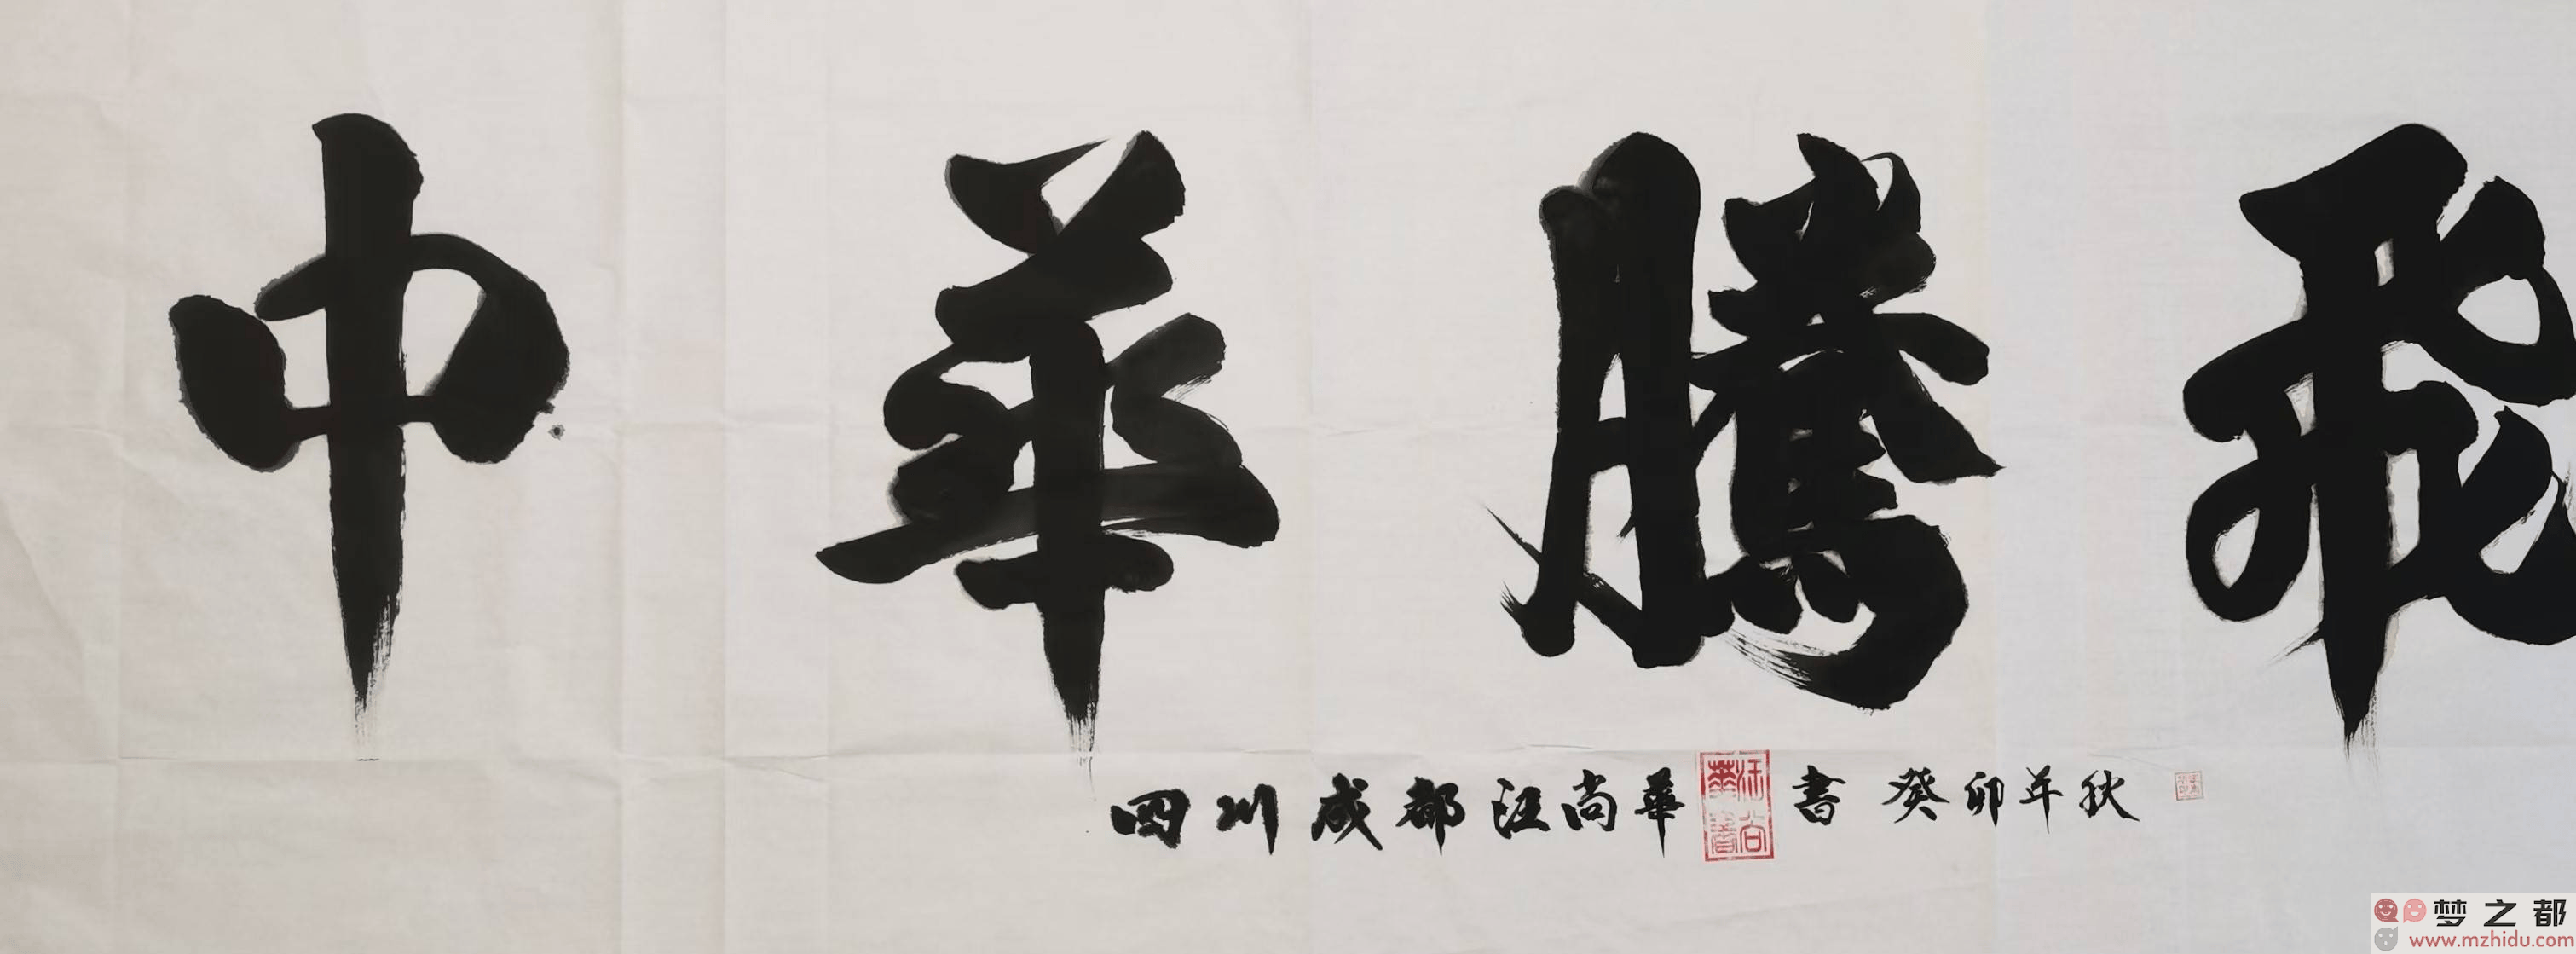 中華騰飛
四川成都汪尚華書 癸卯年秋
汪尚華書
梦之都
www.mzhidu.com